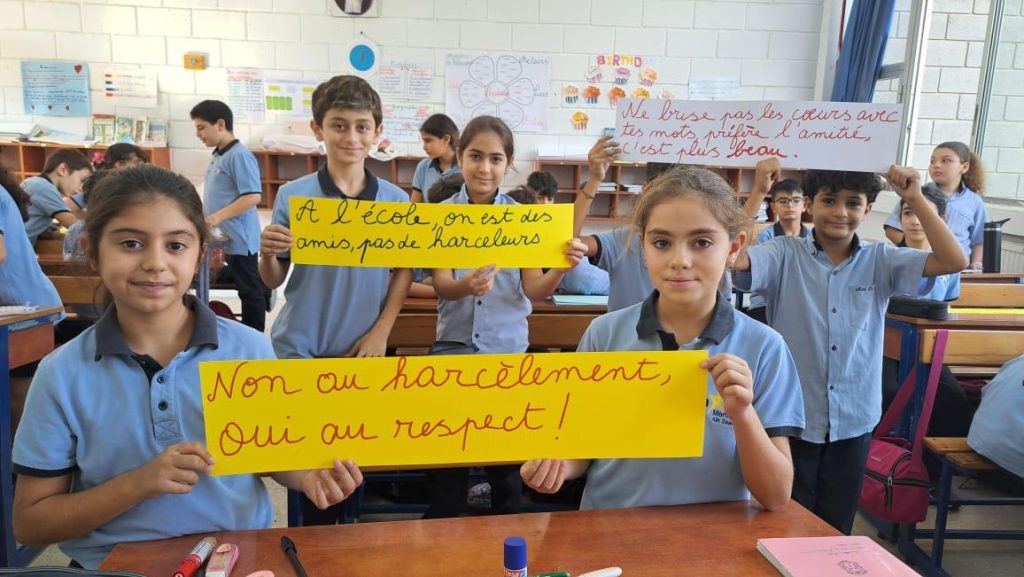 BIRTHD
Ne brise pas les cœurs avec
tes mots, préfère l'amitié,
c'est plus beau.
A l'école, on est des
amis, pas de harceleurs
Non au harcèlement,
Oui au respect !